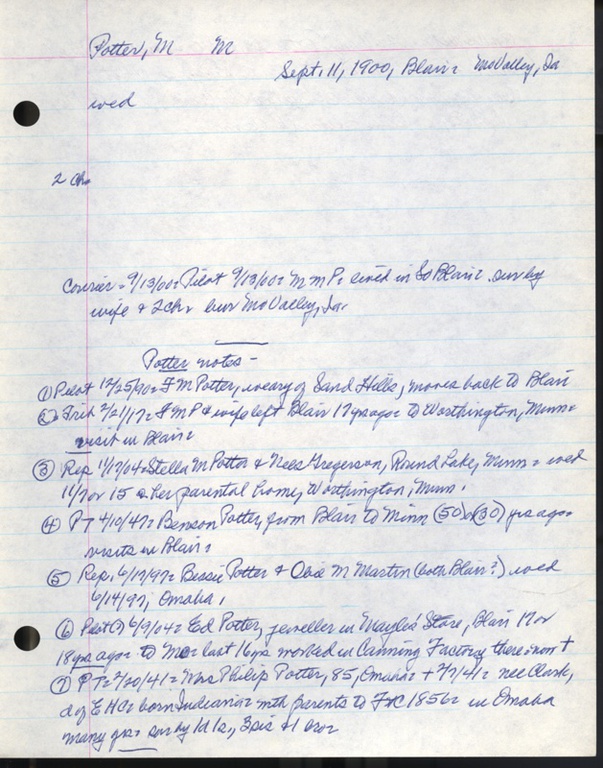 Potter, M M
Sept. 11, 1900, Blair= MoValley, Ia
wed
2 ch=
Courier = 9/13/00= Pilot 9/13/00= M M P= lived in So Blair= sur by
wife & 2ch= bur MoValley, Ia.
Potter notes -
① Pilot 12/25/90= F M Potter, weary of Sand Hills, moves back to Blair
② Trib 2/21/17= F M P & wife left Blair 17 yrs ago= to Worthington, Minn=
visit in Blair=
③ Rep 11/17/04= Stella M Potter & Nees Gregerson, Round Lake, Minn= wed
11/7 or 15 @ her parental home, Worthington, Minn.
④ PT 4/10/47= Benson Potter, from Blair to Minn (50) (30) yrs ago=
visits in Blair=
⑤ Rep. 6/17/97= Bessie Potter & Obie M Martin (both Blair?) wed
6/14/97, Omaha,
⑥ Pilot 6/9/04= Ed Potter, jeweller in store, Blair 17 or
18 yrs ago= to Mo= last 16 yrs worked in Canning Factory there= now †
⑦ PT= 2/20/41= Mrs Philip Potter, 85, Omaha= † 2/7/41= nee Clark,
d of E H C= born Indiana= with parents to FtC 1856= in Omaha
many yrs= sur by 1d 1s, 3sis & 1 bro=